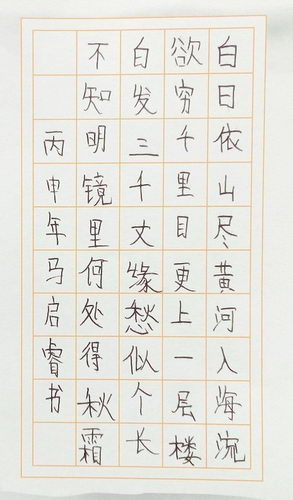 白日依山尽黄河入海流
欲穷千里目更上一层楼
白发三千丈缘愁似个长
不知明镜里何处得秋霜
丙申年马启睿书